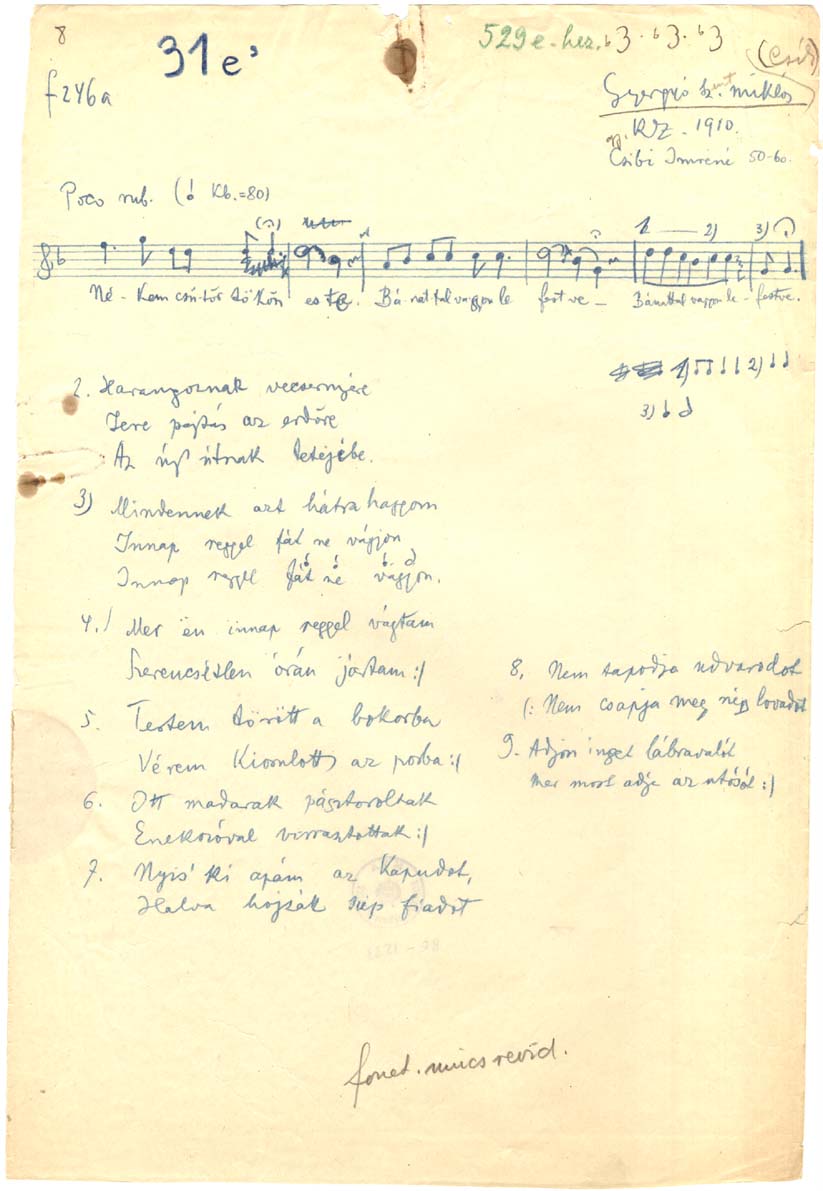 8
31e'
529e.hez. b3. b3. b3
(Csík)
f246a
Gyergyó sz.mt miklós
KZ. 1910.
Csibi Imréné 50-60.
Poco rub. ( Kb.=80)
1 2) 3)
Né-kem csü-tör tökön es te. Bá-nattal vagyon le fest ve- Bánattal vagyon le-festve.
1) 2)
3)
2. Harangoznak vecsernyére
Jere pajtás az erdőre
Az új útnak tetejébe.
3) Mindennek azt hátra hagyom
Innap reggel fát ne vágjon
Innap reggel fát ne vágjon.
4.) Mer én innap reggel vágtam
Szerencsétlen órán jártam:/
5. Testem törött a bokorba
Vérem kiomlott az porba:/
6. Ott madarak pásztoroltak
Énekszóval virrasztottak:/
7. Nyiś ki apám az kapudot,
Halva hojzák szép fiadot
8, Nem tapodja udvarodot
(: Nem csapja meg nép lovadot
9. Adjon inget lábravalót
Mer most adja az utósót:/
fonet. nincs revid.